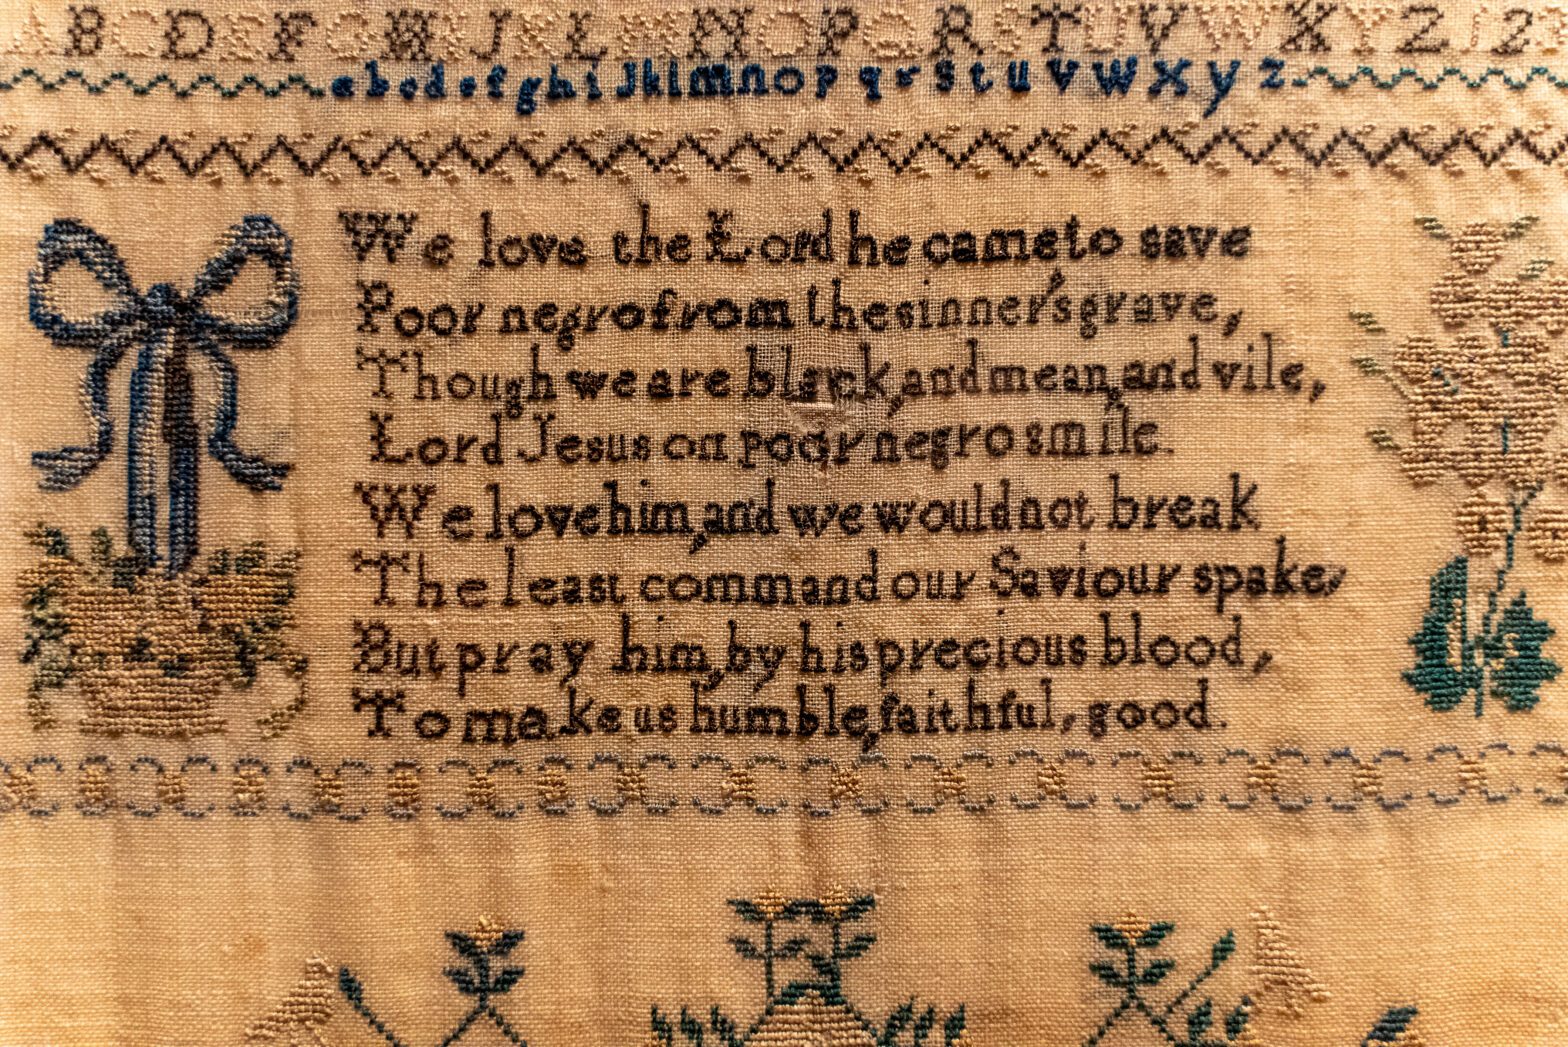 A B C D E F G H I J K L M N O P Q R S T U V W X Y Z 1 2 3
a b c d e f g h i j k l m n o p q r s t u v w x y z
We love the Lord he came to save
Poor negro from the sinner's grave,
Though we are black, and mean, and vile,
Lord Jesus on poor negro smile.
We love him, and we would not break
The least command our Saviour spake,
But pray him, by his precious blood,
To make us humble, faithful, good.